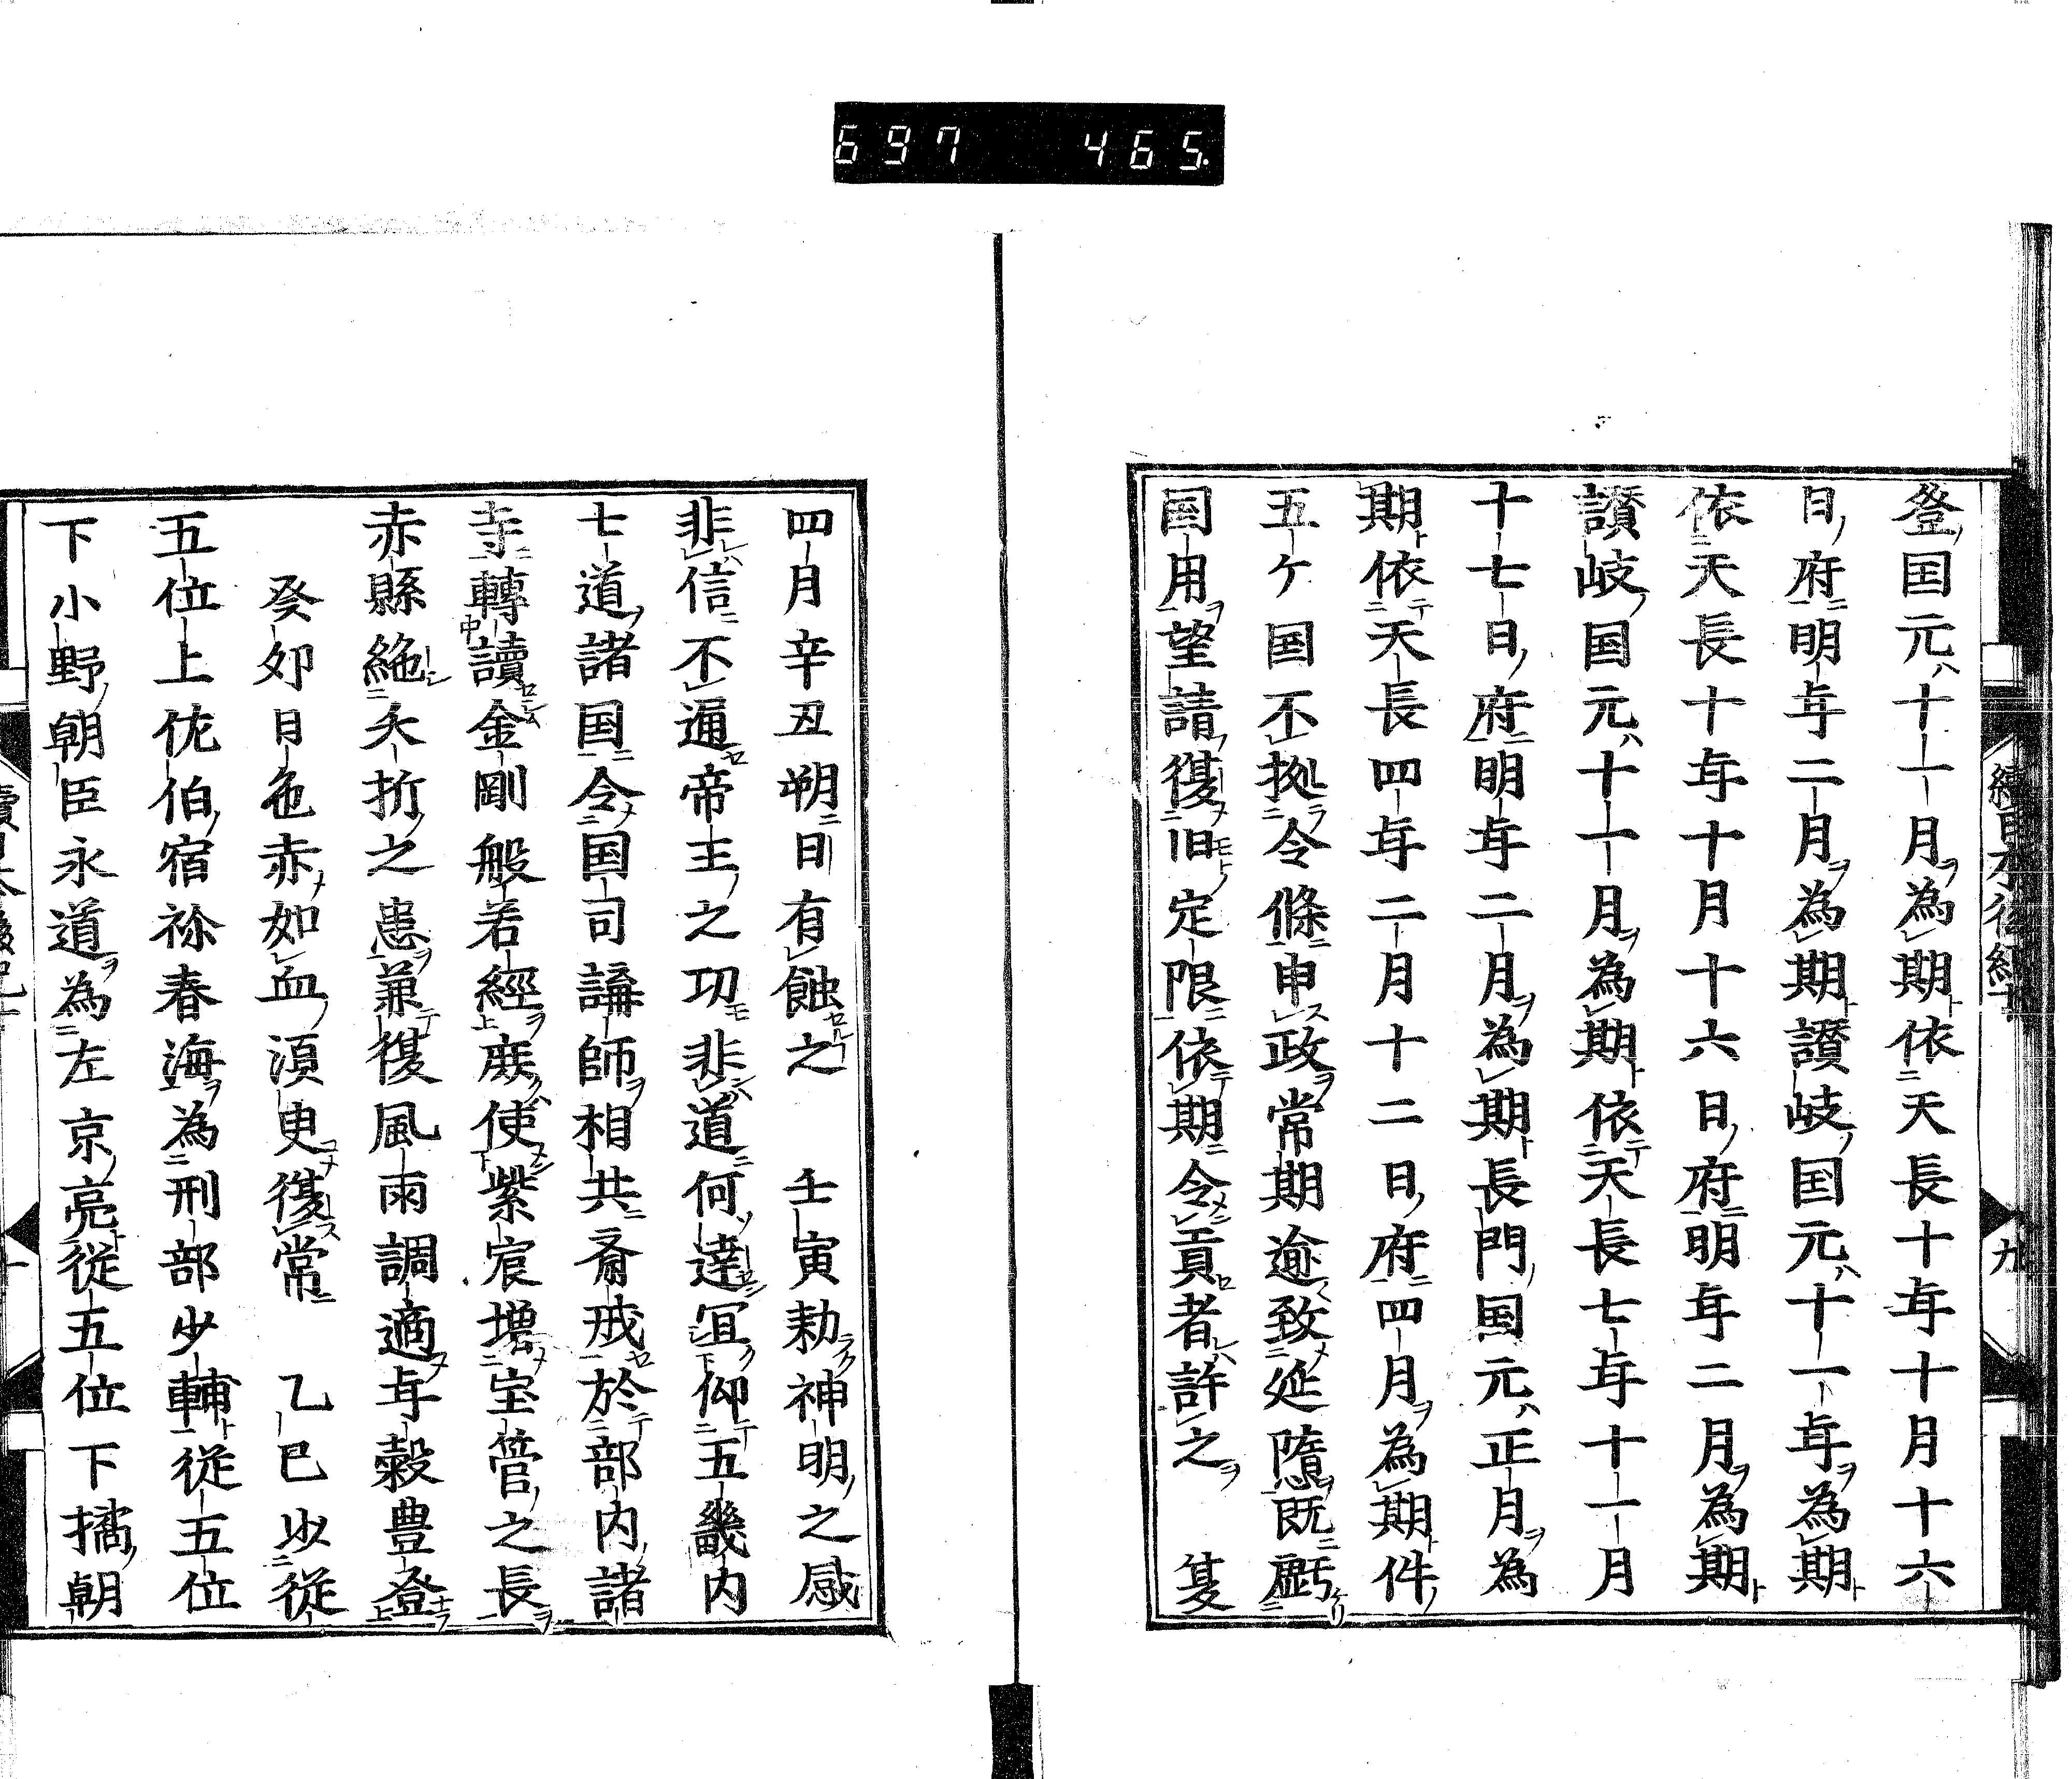 697 465.
登国元十一月為期依天長十年十月十六
日府明年二月為期讃岐国元十一年為期
依天長十年十月十六日府明年二月為期
讃岐国元十一月為期依天長七年十一月
十七日府明年二月為期長門国元正月為
期依天長四年二月十二日府四月為期件
五ケ国不拠令條申政常期逾致延隳既虧
国用望請復旧定限依期令貢者許之
九
四月辛丑朔日有蝕之 壬寅勅神明之感
非信不通帝王之功非道何達冝仰五畿内
七道諸国令国司講師相共斎戒於部内諸
寺轉讀金剛般若經庶使紫宸増宝筭之長
赤縣絶夭折之患兼復風雨調適年穀豊登
癸夘日色赤如血湏臾復常 乙巳以従
五位上佐伯宿祢春海為刑部少輔従五位
下小野朝臣永道為左京亮従五位下橘朝